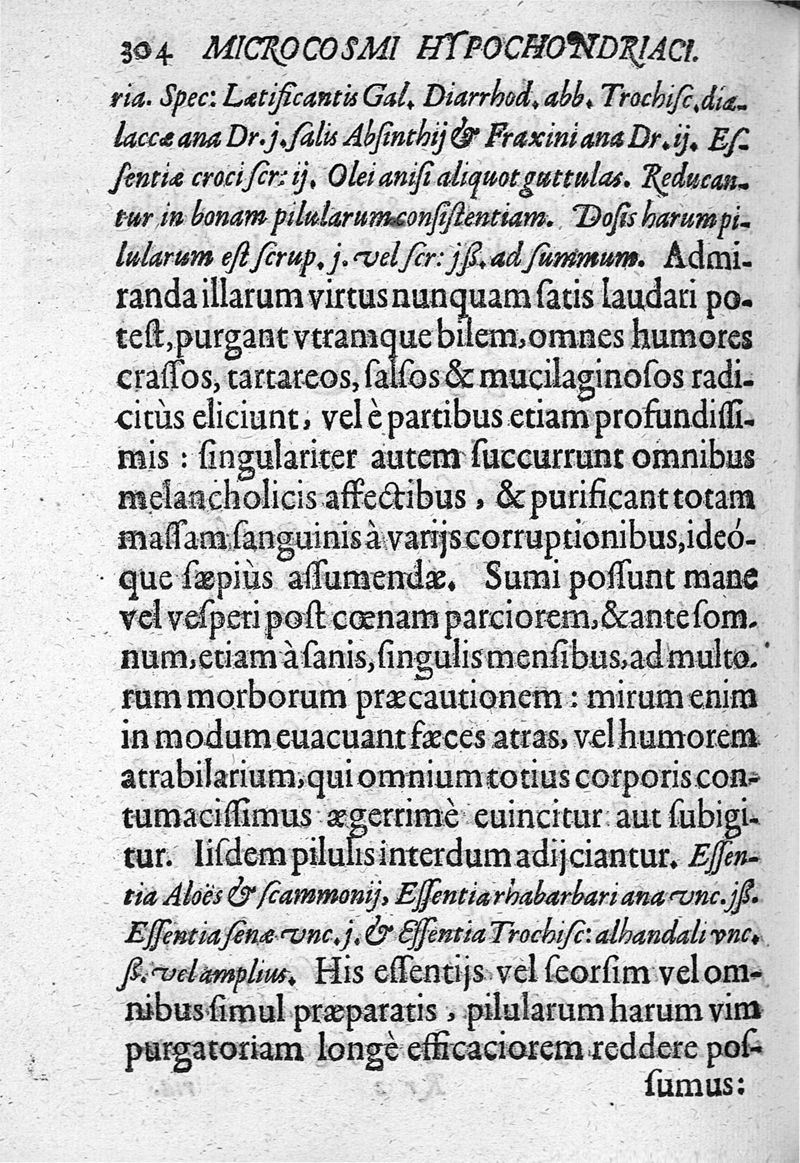 304 MICROCOSMI HYPOCHONDRIACI.
ria. Spec: Lætificantis Gal. Diarrhod. abb. Trochiſc. diæ-
laccæ ana Dr. j. ſalis Abſinthij & Fraxini ana Dr. ij. Eſ-
ſentiæ croci ſcr: ij. Olei aniſi aliquot guttulas. Reducan-
tur in bonam pilularum conſiſtentiam. Doſis harum pi-
lularum eſt ſcrup. j. vel ſcr: jß. ad ſummum. Admi-
randa illarum virtus nunquam ſatis laudari po-
teſt, purgant vtramque bilem, omnes humores
craſſos, tartareos, ſalſos & mucilaginoſos radi-
citùs eliciunt, vel è partibus etiam profundiſſi-
mis : ſingulariter autem ſuccurrunt omnibus
melancholicis affectibus, & purificant totam
maſſam ſanguinis à varijs corruptionibus, ideó-
que ſæpiùs aſſumendæ. Sumi poſſunt mane
vel veſperi poſt cœnam parciorem, & ante ſom-
num, etiam à ſanis, ſingulis menſibus, ad multo-
rum morborum præcautionem : mirum enim
in modum euacuant fæces atras, vel humorem
atrabilarium, qui omnium totius corporis con-
tumaciſſimus ægerrimè euincitur aut ſubigi-
tur. Iiſdem pilulis interdum adijciantur. Eſſen-
tia Aloës & ſcammonij, Eſſentia rhabarbari ana vnc. jß.
Eſſentia ſenæ vnc. j. & Eſſentia Trochiſc: alhandali vnc.
ß. vel amplius. His eſſentijs vel ſeorſim vel om-
nibus ſimul præparatis, pilularum harum vim
purgatoriam longè efficaciorem reddere poſ-
ſumus: